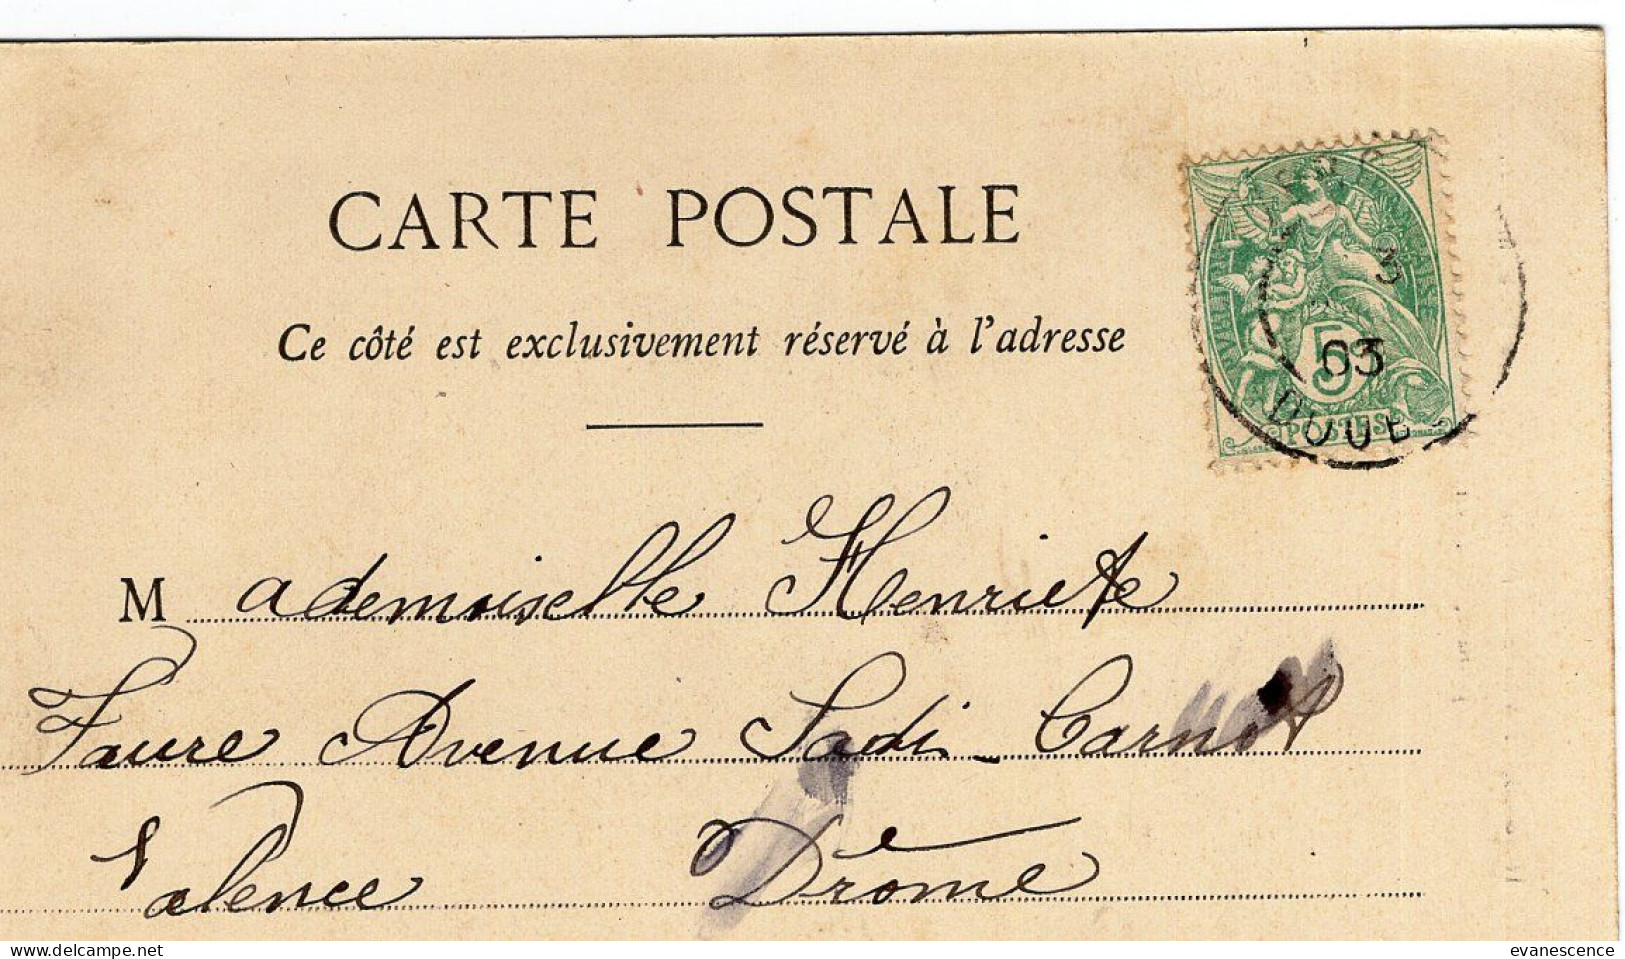 CARTE POSTALE
Ce côté est exclusivement réservé à l'adresse
5
POSTES
03
Mademoiselle Henriette
Faure Avenue Sadi-Carnot
Valence Drôme
www.delcampe.net
evanescence